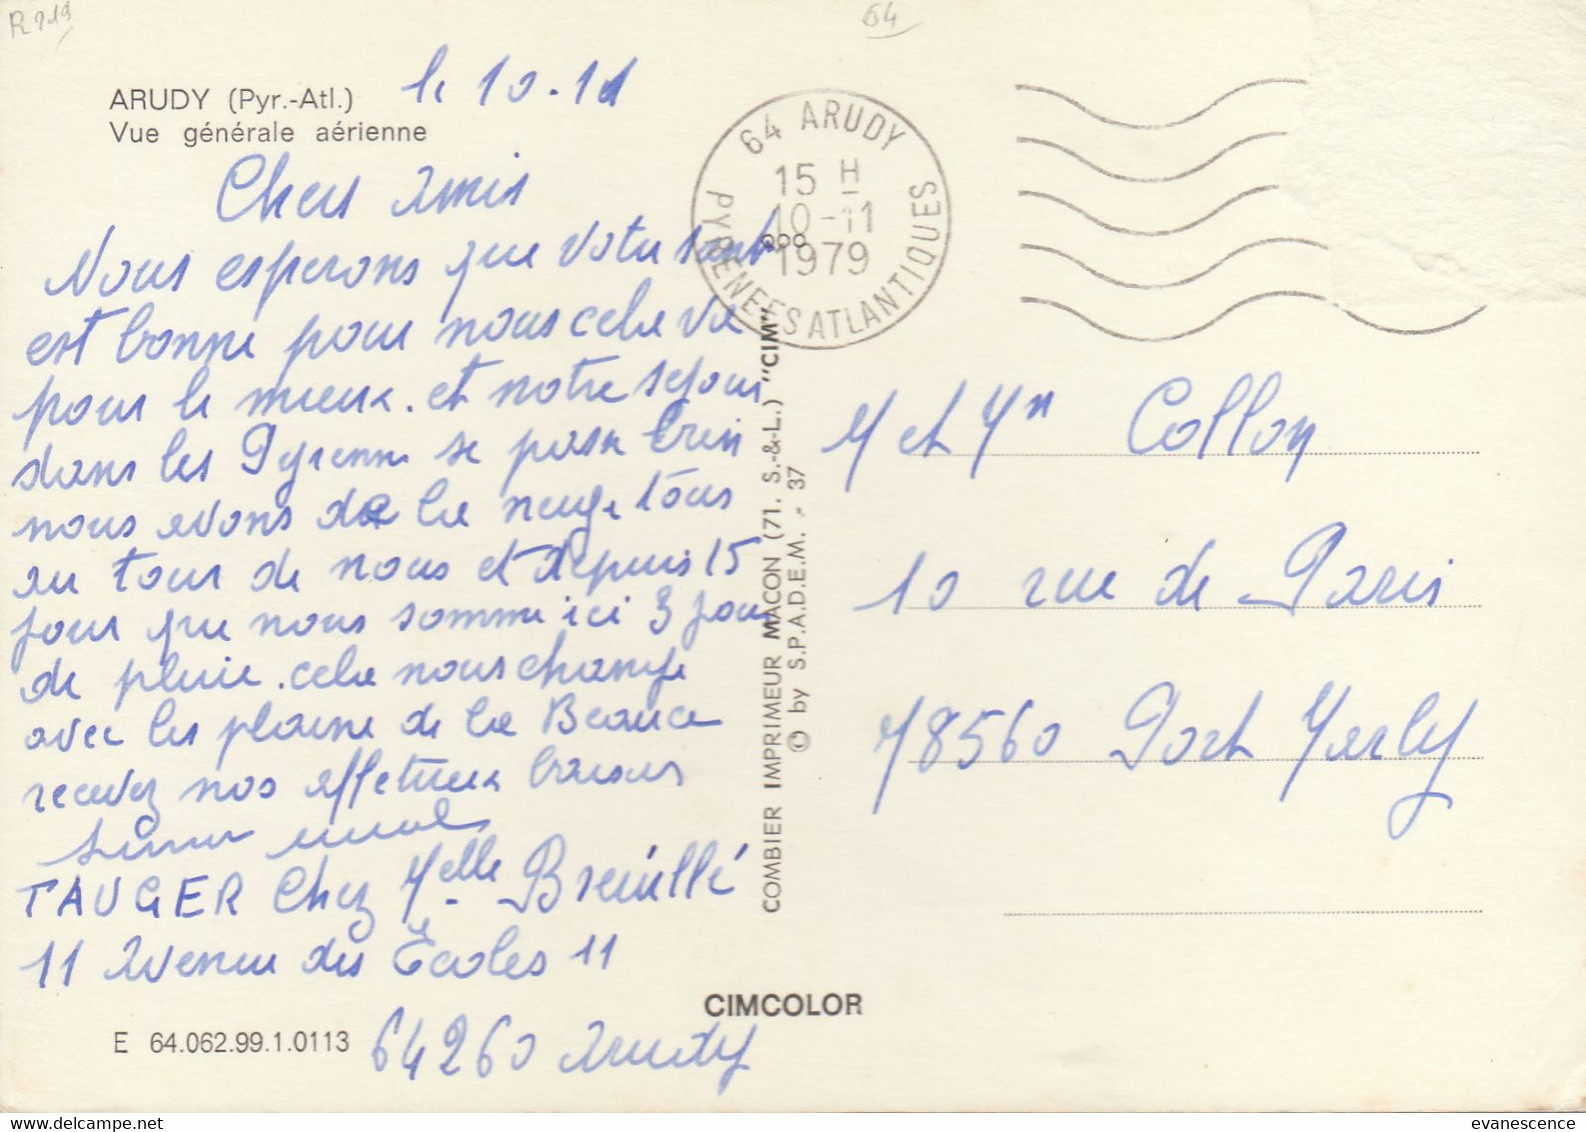 R 219
64
ARUDY (Pyr.-Atl.)
Vue générale aérienne
le 10.11
64 ARUDY
PYRENEES ATLANTIQUES
15 H
10-11
1979
Chers Amis
Nous esperons que votre santé
est bonne pour nous cela va
pour le mieux. et notre sejour
dans les Pyrenne se passe bien
nous avons de la neige tous
au tour de nous et depuis 15
jour que nous somme ici 3 jour
de pluie. cela nous change
avec les plaine de la Beauce
recevez nos affetueux baisers
TAUGER Chez Melle Breuillé
11 Avenue des Écoles 11
64260 Arudy
M et Mm Collon
10 rue de Paris
78560 Port Marly
COMBIER IMPRIMEUR MACON (71. S.-&-L.) "CIM"
© by S.P.A.D.E.M. - 37
CIMCOLOR
E 64.062.99.1.0113
evanescence